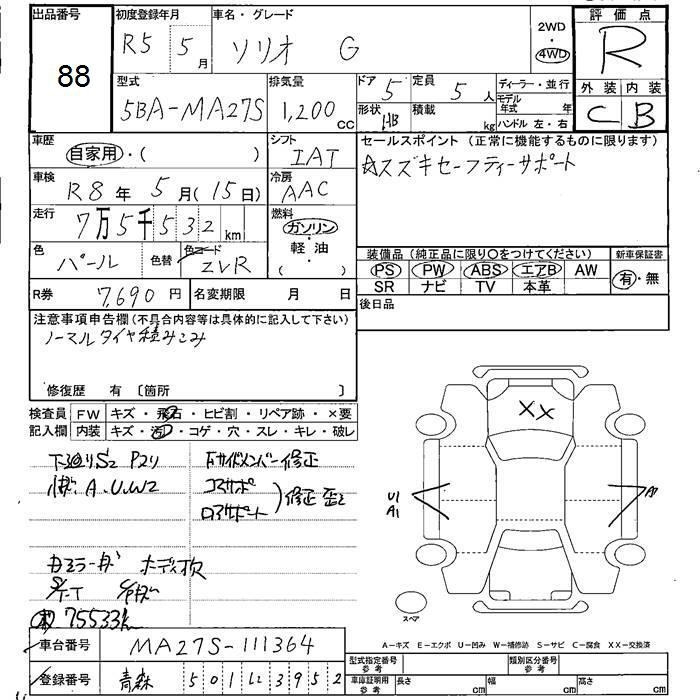 出品番号
88
初度登録年月
R5 5月
車名・グレード
ソリオ G
2WD
・
4WD
評価点
R
外装 内装
C B
型式
5BA-MA27S
排気量
1,200 cc
ドア 5
定員 5人
形状 HB
積載 kg
ディーラー・並行
モデル年式 年
ハンドル 左・右
車歴
自家用・( )
シフト
IAT
セールスポイント (正常に機能するものに限ります)
☆スズキセーフティーサポート
車検
R8年 5月(15日)
冷房
AAC
走行
7万5千532km
燃料
ガソリン
軽・油
( )
色
パール
色替
色コード
ZVR
装備品(純正品に限り○をつけてください)
PS PW ABS エアB AW
SR ナビ TV 本革
新車保証書
有・無
R券 7,690円
名変期限 月 日
後日品
注意事項申告欄(不具合内容等は具体的に記入して下さい)
ノーマルタイヤ積みこみ
修復歴 有 〔箇所 〕
検査員記入欄
FW キズ・飛石・ヒビ割・リペア跡・×要
内装 キズ・汚・コゲ・穴・スレ・キレ・破レ
下廻りS2 P2リ
A.U.W2
右サイドメンバー修正
コアサポ
ロアサポート
修正 歪2
75533k
XX
U1
A1
A1
スペア
A-キズ E-エクボ U-凹み W-補修跡 S-サビ C-腐食 XX-交換済
車台番号 MA27S-111364
登録番号 青森 501 に 3952
型式指定番号 参考
類別区分番号 参考
車庫証明用 参考
長さ cm
幅 cm
高さ cm